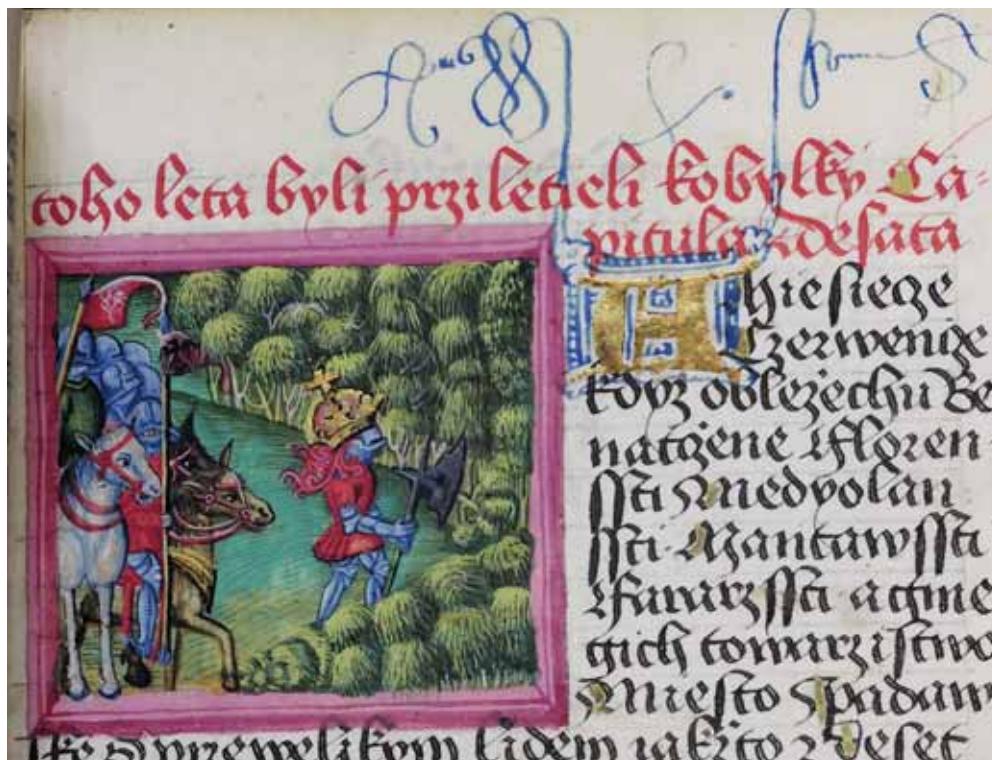 toho leta byli prziletieli kobylky Ca-
pitula desata
hiesiecze
Czerwenige
kdyz oblezechu Be
natczene Floren
ssti Medyolan
ssti Mantawssti
a gine
gich towarzistwo
Miesto Padaw
lidem iakzto z deset